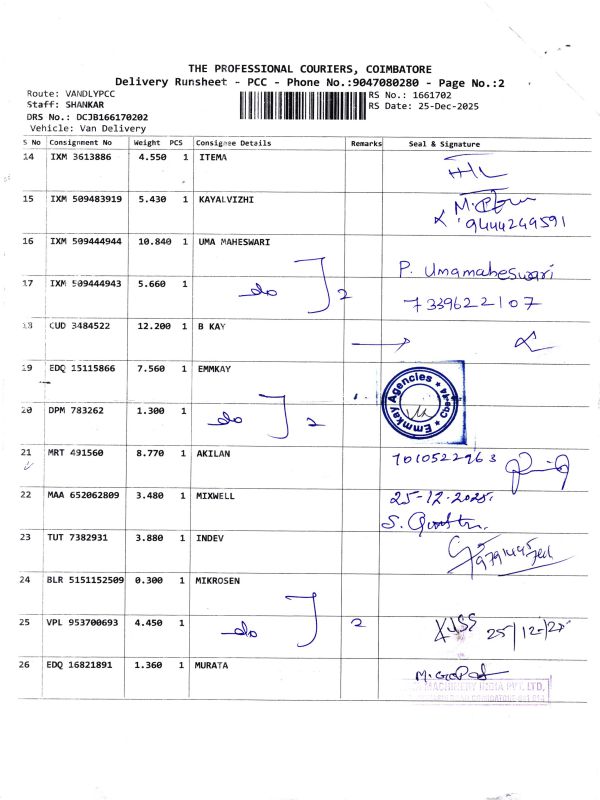 THE PROFESSIONAL COURIERS, COIMBATORE
Delivery Runsheet - PCC - Phone No.:9047080280 - Page No.:2
Route: VANDLYPCC RS No.: 1661702
Staff: SHANKAR RS Date: 25-Dec-2025
DRS No.: DCJB166170202
Vehicle: Van Delivery
S No Consignment No Weight PCS Consignee Details Remarks Seal & Signature
14 IXM 3613886 4.550 1 ITEMA
15 IXM 509483919 5.430 1 KAYALVIZHI
9444249591
16 IXM 509444944 10.840 1 UMA MAHESWARI P. Umamaheswari
17 IXM 509444943 5.660 1 do 2 7339622107
18 CUD 3484522 12.200 1 B KAY
19 EDQ 15115866 7.560 1 EMMKAY Emmkay Agencies
20 DPM 783262 1.300 1 do 2
21 MRT 491560 8.770 1 AKILAN 7010522963
22 MAA 652062809 3.480 1 MIXWELL 25-12-2025.
23 TUT 7382931 3.880 1 INDEV
24 BLR 5151152509 0.300 1 MIKROSEN
25 VPL 953700693 4.450 1 do 2 25/12/25
26 EDQ 16821891 1.360 1 MURATA M. GOPAL
MACHINERY INDIA PVT. LTD,